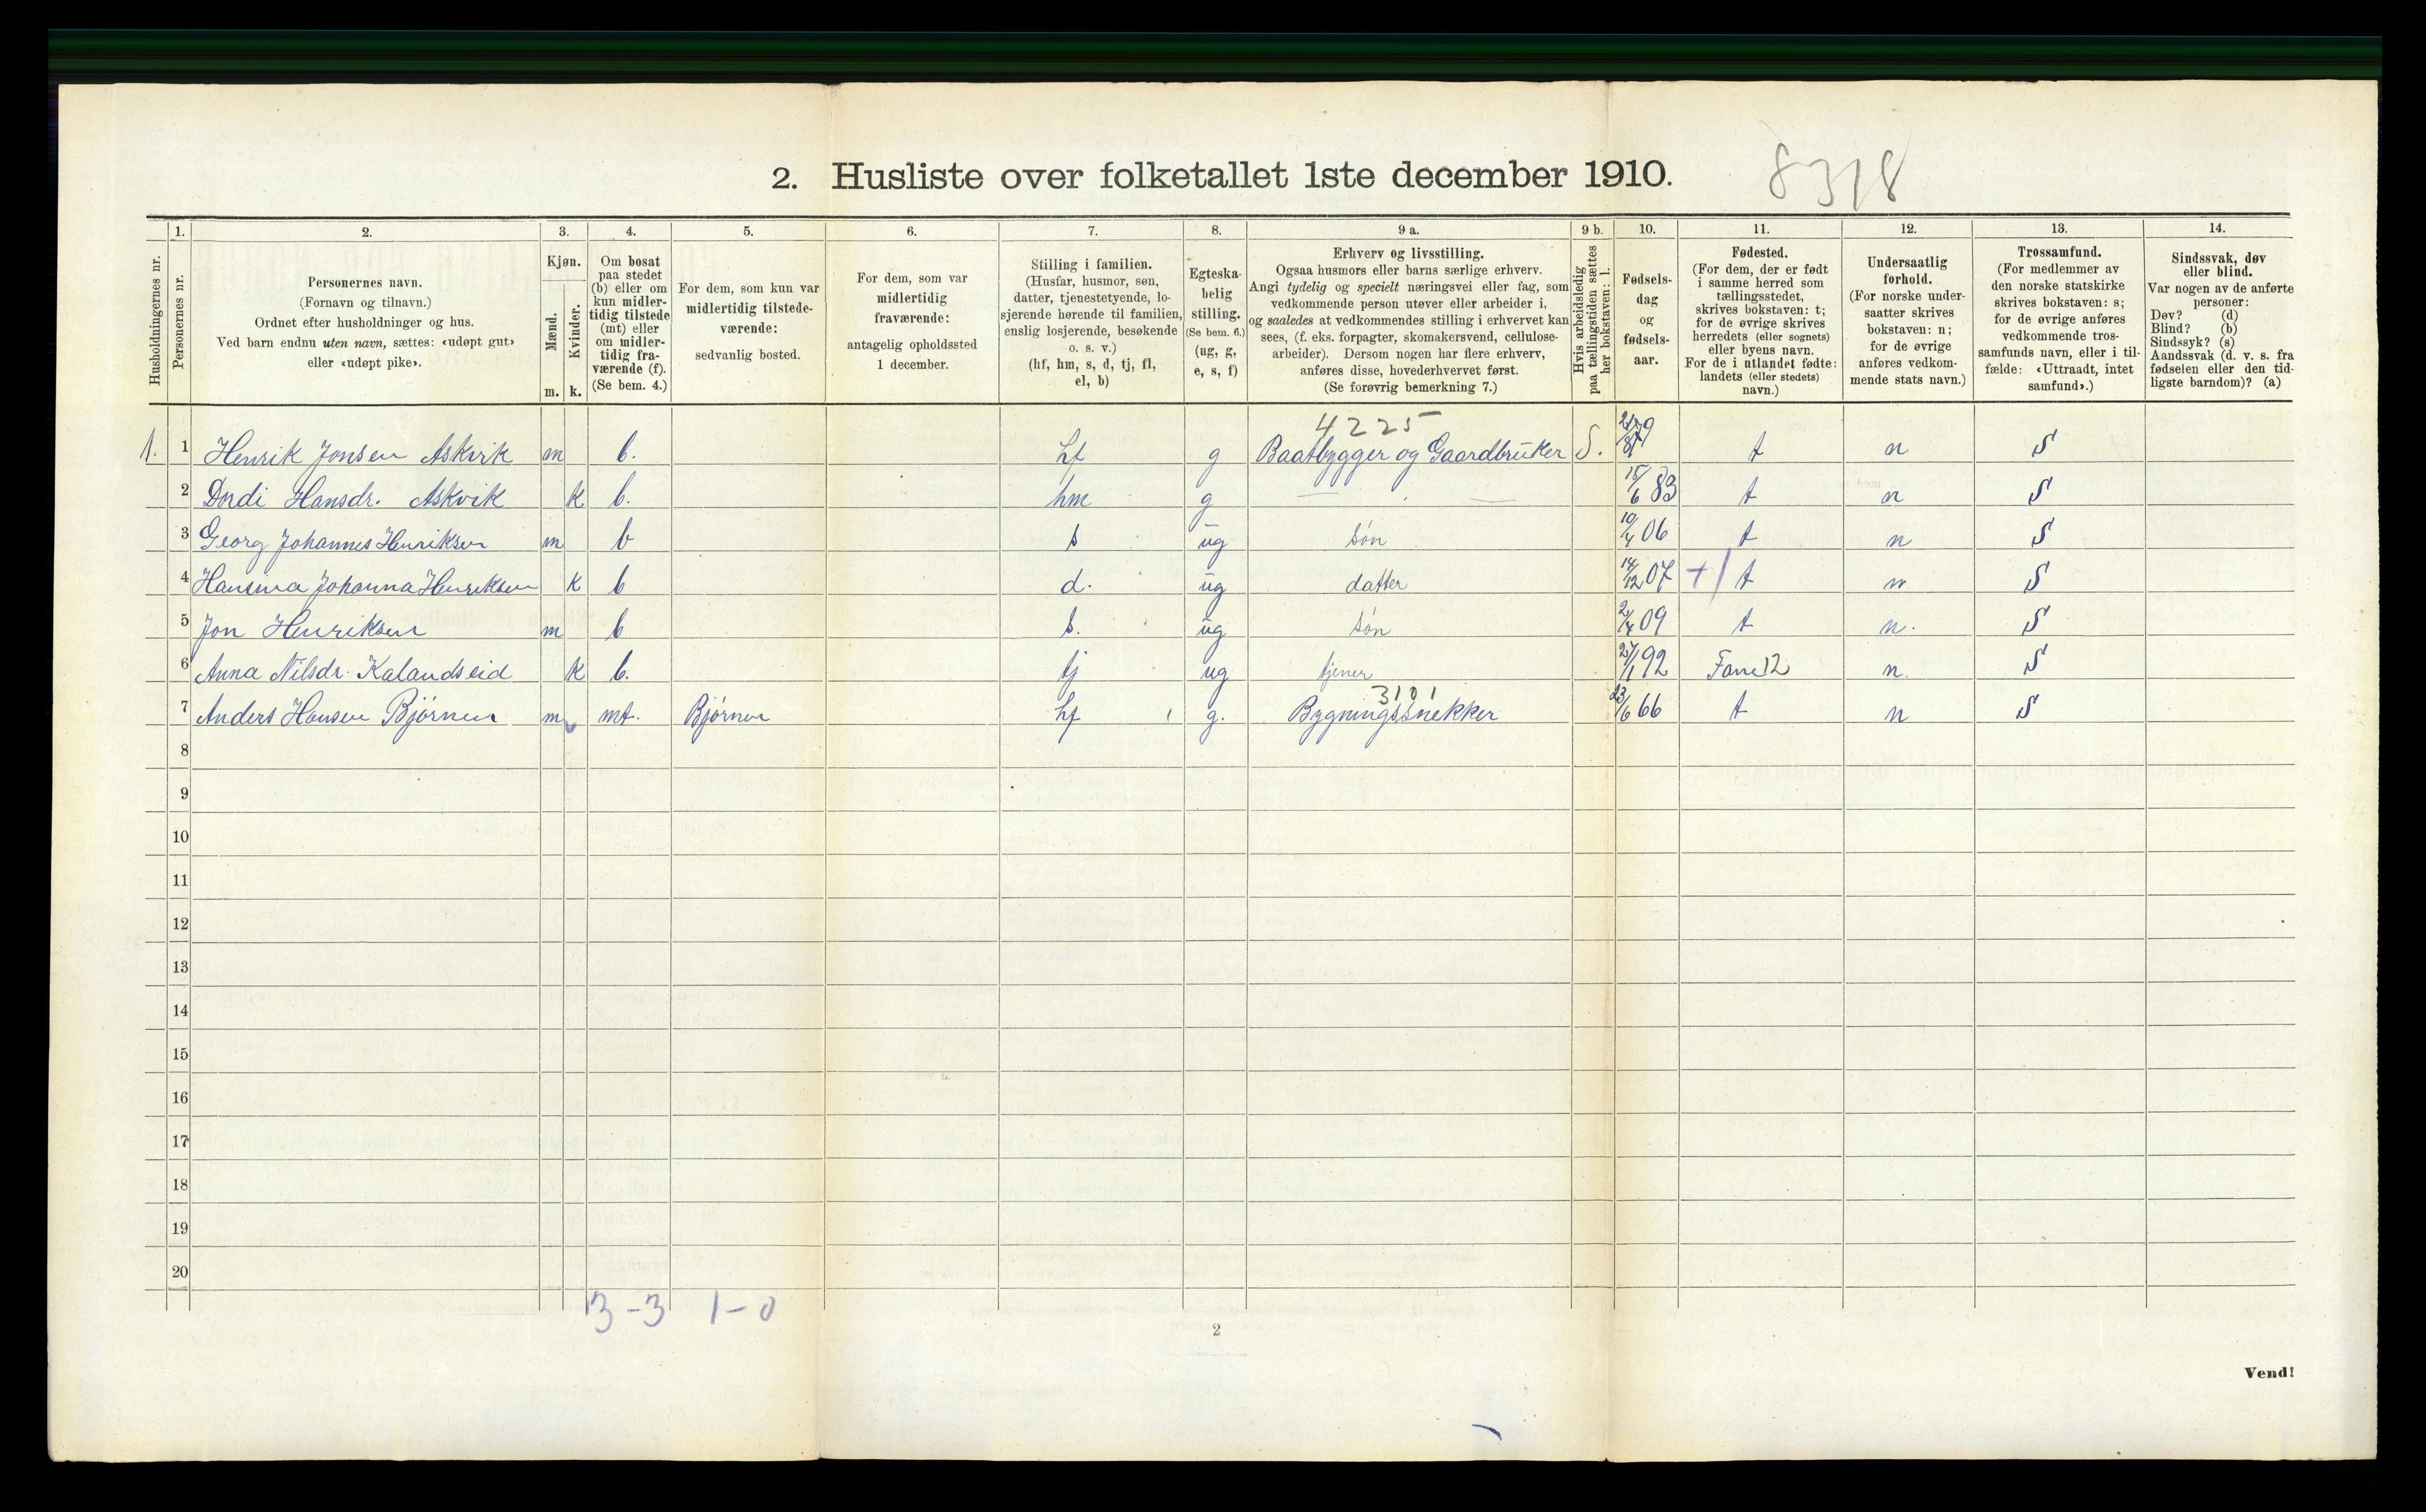 2. Husliste over folketallet 1ste december 1910.
8318
Husholdningernes nr.
1.
Personernes nr.
2.
Personernes navn.
(Fornavn og tilnavn.)
Ordnet efter husholdninger og hus.
Ved barn endnu uten navn, sættes: «udøpt gut»
eller «udøpt pike».
3.
Kjøn.
Mænd.
Kvinder.
m. k.
4.
Om bosat
paa stedet
(b) eller om
kun midler-
tidig tilstede
(mt) eller
om midler-
tidig fra-
værende (f).
(Se bem. 4.)
5.
For dem, som kun var
midlertidig tilstede-
værende:
sedvanlig bosted.
6.
For dem, som var
midlertidig
fraværende:
antagelig opholdssted
1 december.
7.
Stilling i familien.
(Husfar, husmor, søn,
datter, tjenestetyende, lo-
sjerende hørende til familien,
enslig losjerende, besøkende
o. s. v.)
(hf, hm, s, d, tj, fl,
el, b)
8.
Egteska-
belig
stilling.
(Se bem. 6.)
(ug, g,
e, s, f)
9 a.
Erhverv og livsstilling.
Ogsaa husmors eller barns særlige erhverv.
Angi tydelig og specielt næringsvei eller fag, som
vedkommende person utøver eller arbeider i,
og saaledes at vedkommendes stilling i erhvervet kan
sees, (f. eks. forpagter, skomakersvend, cellulose-
arbeider). Dersom nogen har flere erhverv,
anføres disse, hovederhvervet først.
(Se forøvrig bemerkning 7.)
9 b.
Hvis arbeidsledig
paa tællingstiden sættes
her bokstaven: l.
10.
Fødsels-
dag
og
fødsels-
aar.
11.
Fødested.
(For dem, der er født
i samme herred som
tællingsstedet,
skrives bokstaven: t;
for de øvrige skrives
herredets (eller sognets)
eller byens navn.
For de i utlandet fødte:
landets (eller stedets)
navn.)
12.
Undersaatlig
forhold.
(For norske under-
saatter skrives
bokstaven: n;
for de øvrige
anføres vedkom-
mende stats navn.)
13.
Trossamfund.
(For medlemmer av
den norske statskirke
skrives bokstaven: s;
for de øvrige anføres
vedkommende tros-
samfunds navn, eller i til-
fælde: «Uttraadt, intet
samfund».)
14.
Sindssvak, døv
eller blind.
Var nogen av de anførte
personer:
Døv? (d)
Blind? (b)
Sindssyk? (s)
Aandssvak (d. v. s. fra
fødselen eller den tid-
ligste barndom)? (a)
4225
1. 1 Henrik Jonsen Askvik m b. hf g Baatbygger og Gaardbruker S. t n S
2 Dordi Hansdr. Askvik k b. hm g — — 15/6 83 t n S
3 Georg Johannes Henriksen m b s ug søn 10/4 06 t n S
4 Hansina Johanna Henriksen k b d. ug datter 14/12 07 + t n S
5 Jon Henriksen m b s. ug søn 2/4 09 t n. S
6 Anna Nilsdr. Kalandseid k b. tj ug tjener 27/1 92 Fane 12 n. S
3101
7 Anders Hansen Bjørnen m mt. Bjørnen hf g. Bygningssnekker 23/6 66 t n S
8
9
10
11
12
13
14
15
16
17
18
19
20
3-3 1-0
2
Vend!